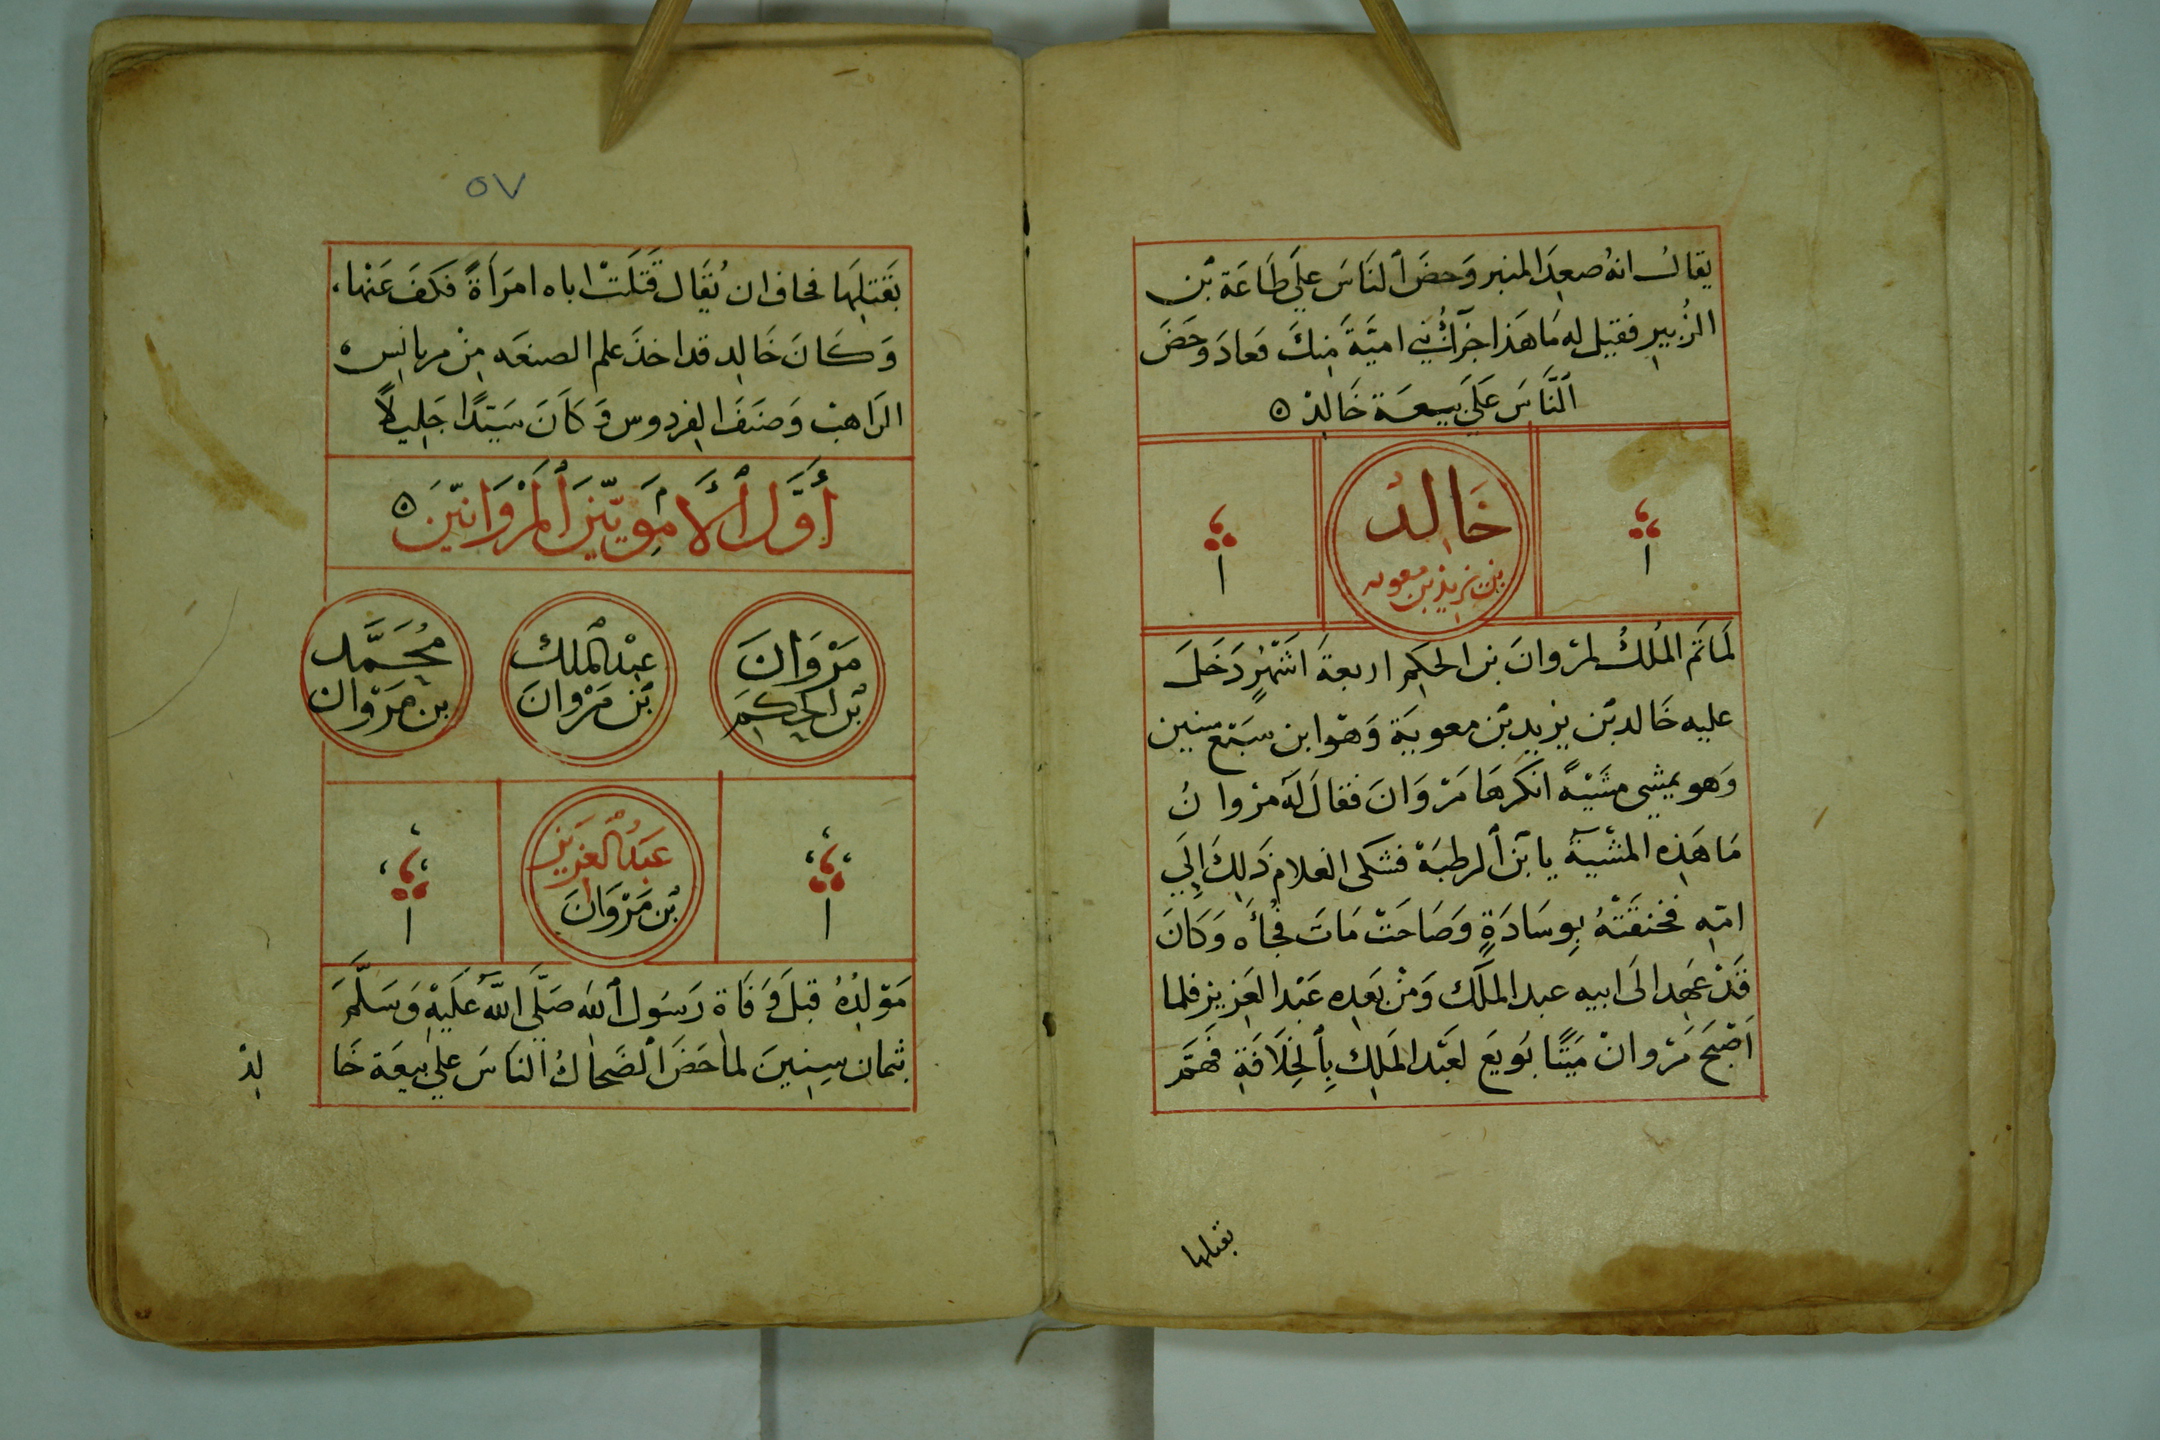 يقال انهُ صعِدَ المنبر وَحضَ ٱلنَاسَ علَي طَاعَة بْن
الزُبيرِ فقيل له مَا هَذا اجرَأك بني اميَّةَ مِنكَ فعادَ وحَضَ
اَلنَّاسَ عَلَى بيعَة خَالدْ ٥
خَالِدُ
بن يزيد بن معويه
ا
ا
لمَا تَم المُلكُ لمرْوانَ بن الحكمِ اربعةَ اشْهُرٍ دَخَلَ
عليه خَالد بْن يزيد بْن معويَةٍ وَهوَ ابن سَبْع سِنين
وَهو يمشِي مِشْيَةً انْكَرهَا مَرْوَانَ فقالَ لَهُ مرْوانُ
مَا هَذِهِ المشْيةُ يا بْنَ ٱلرطبَة فشكى الغلام ذَلِكَ إِلَي
امّهِ فخنقَتْهُ بِوسَادَةٍ وَصَاحَتْ مَاتَ فجُأَه وَكَانَ
قَدْ عَهِد الَى ابيه عبد الملَك وَمنْ بعَدِهِ عَبْد العَزيز فلما
اَصْبَح مَرْوانْ مَيَتًا بُويعَ لعَبْد المَلِك بِٱلْخِلَافَةِ فَهَمَّ
بقتلها
٥٧
بقَتلِهَا فخاف ان يُقَال قَتَلَتْ اباه امرَأَةً فَكفَ عَنْها،
وَكَانَ خَالِد قد اخذَ علم الصنعَه مِنْ مريانِس
الرَاهبْ وَصَنفَ الفِردوس وَكَانَ سَيّدًا جَلِيلاً
أَوَّلُ ٱلأَمَوِيّينَ ٱلمَرْوَانيّينَ ٥
مَرْوَانَ
بْن الحكم
عبْد الملك
بْن مَرْوانَ
مُحَمَّد
بن مَرْوان
عَبَدُ العَزيز
بْن مَرْوَانَ
ا
ا
مَوْلِدُهُ قبلَ وَفَاة رَسَول ٱللَه صَلَّى اللَّه عَلَيهِ وَسَلَّمَ
بثمان سِنِينَ لما حَضَ الضَحاكُ النَاسَ علي بيعَة خَا
لِدْ